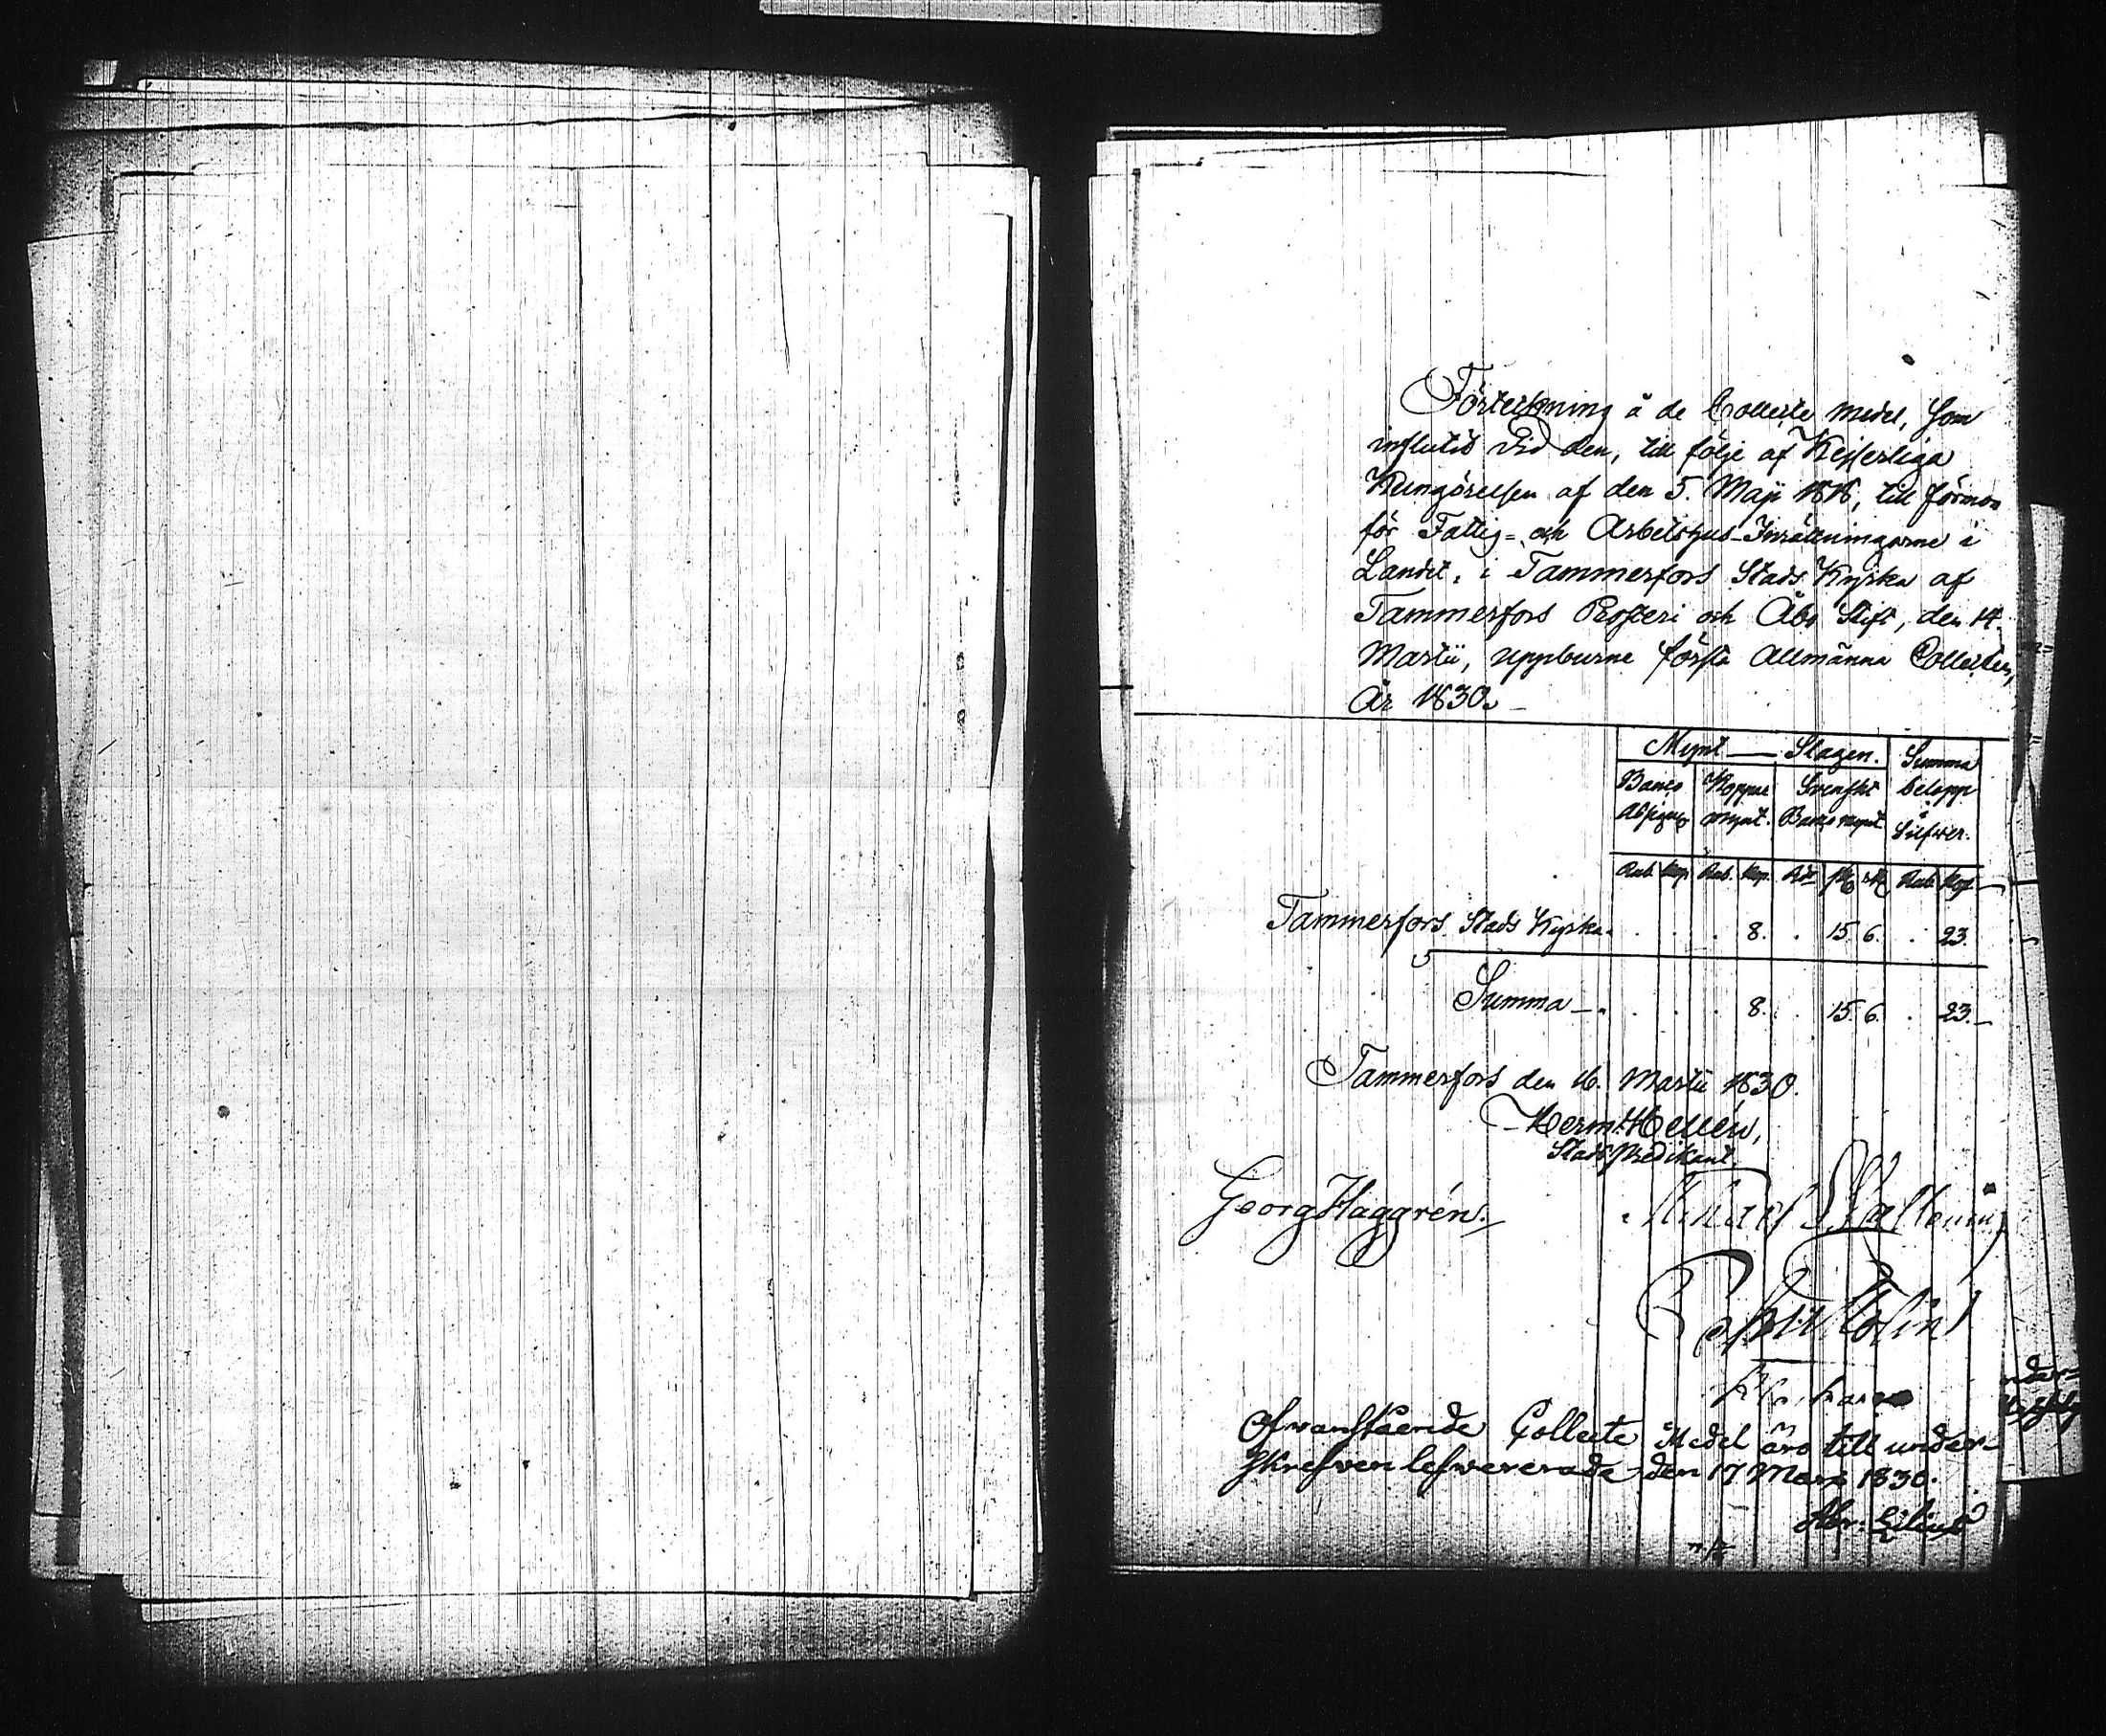 Förteckning å de Collecte medel, som
influtit vid den, till följe af Kejserliga
Kungörelsen af den 5. Maji 1818, till förmon
för Fattig- och Arbetshus-Inrättningarne i
Landet, i Tammerfors Stads Kyrka af
Tammerfors Prosteri och Åbo Stift, den 14.
Martii, uppburne första allmänna Collecten,
år 1830.
Mynt Slagen. Summa
Banco Koppar Svenskt belopp
Assign. mynt. Banco mynt. i Silfver.
Rub. Kop. Rub. Kop. Rdr Sk. Rub. Kop.
Tammerfors Stads Kyrka. 8. 15. 6. 23.
Summa 8. 15. 6. 23.
Tammerfors den 16. Martii 1830.
Herm. Hellén,
Stads Predikant.
Georg Haggrén.
Ofvanstående Collecte Medel äro till under-
skrefven lefvererade den 17 Mars 1830.